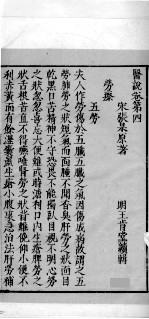 醫說卷第四
宋張杲原著
明王肯堂續輯
勞瘵
五勞
夫人作勞傷於五臟五臟之氣因傷成病故謂之五
勞肺勞之狀短氣而面腫不聞香臭肝勞之狀面目
乾黑口苦精神不守恐畏不能獨臥目視不明心勞
之狀忽忽喜忘大便難或時溏利口內生瘡脾勞之
狀舌根苦直不得嚥唾腎勞之狀背難俛仰小便不
利赤黃而有餘瀝囊濕生瘡小腹滿急治法肝勞補